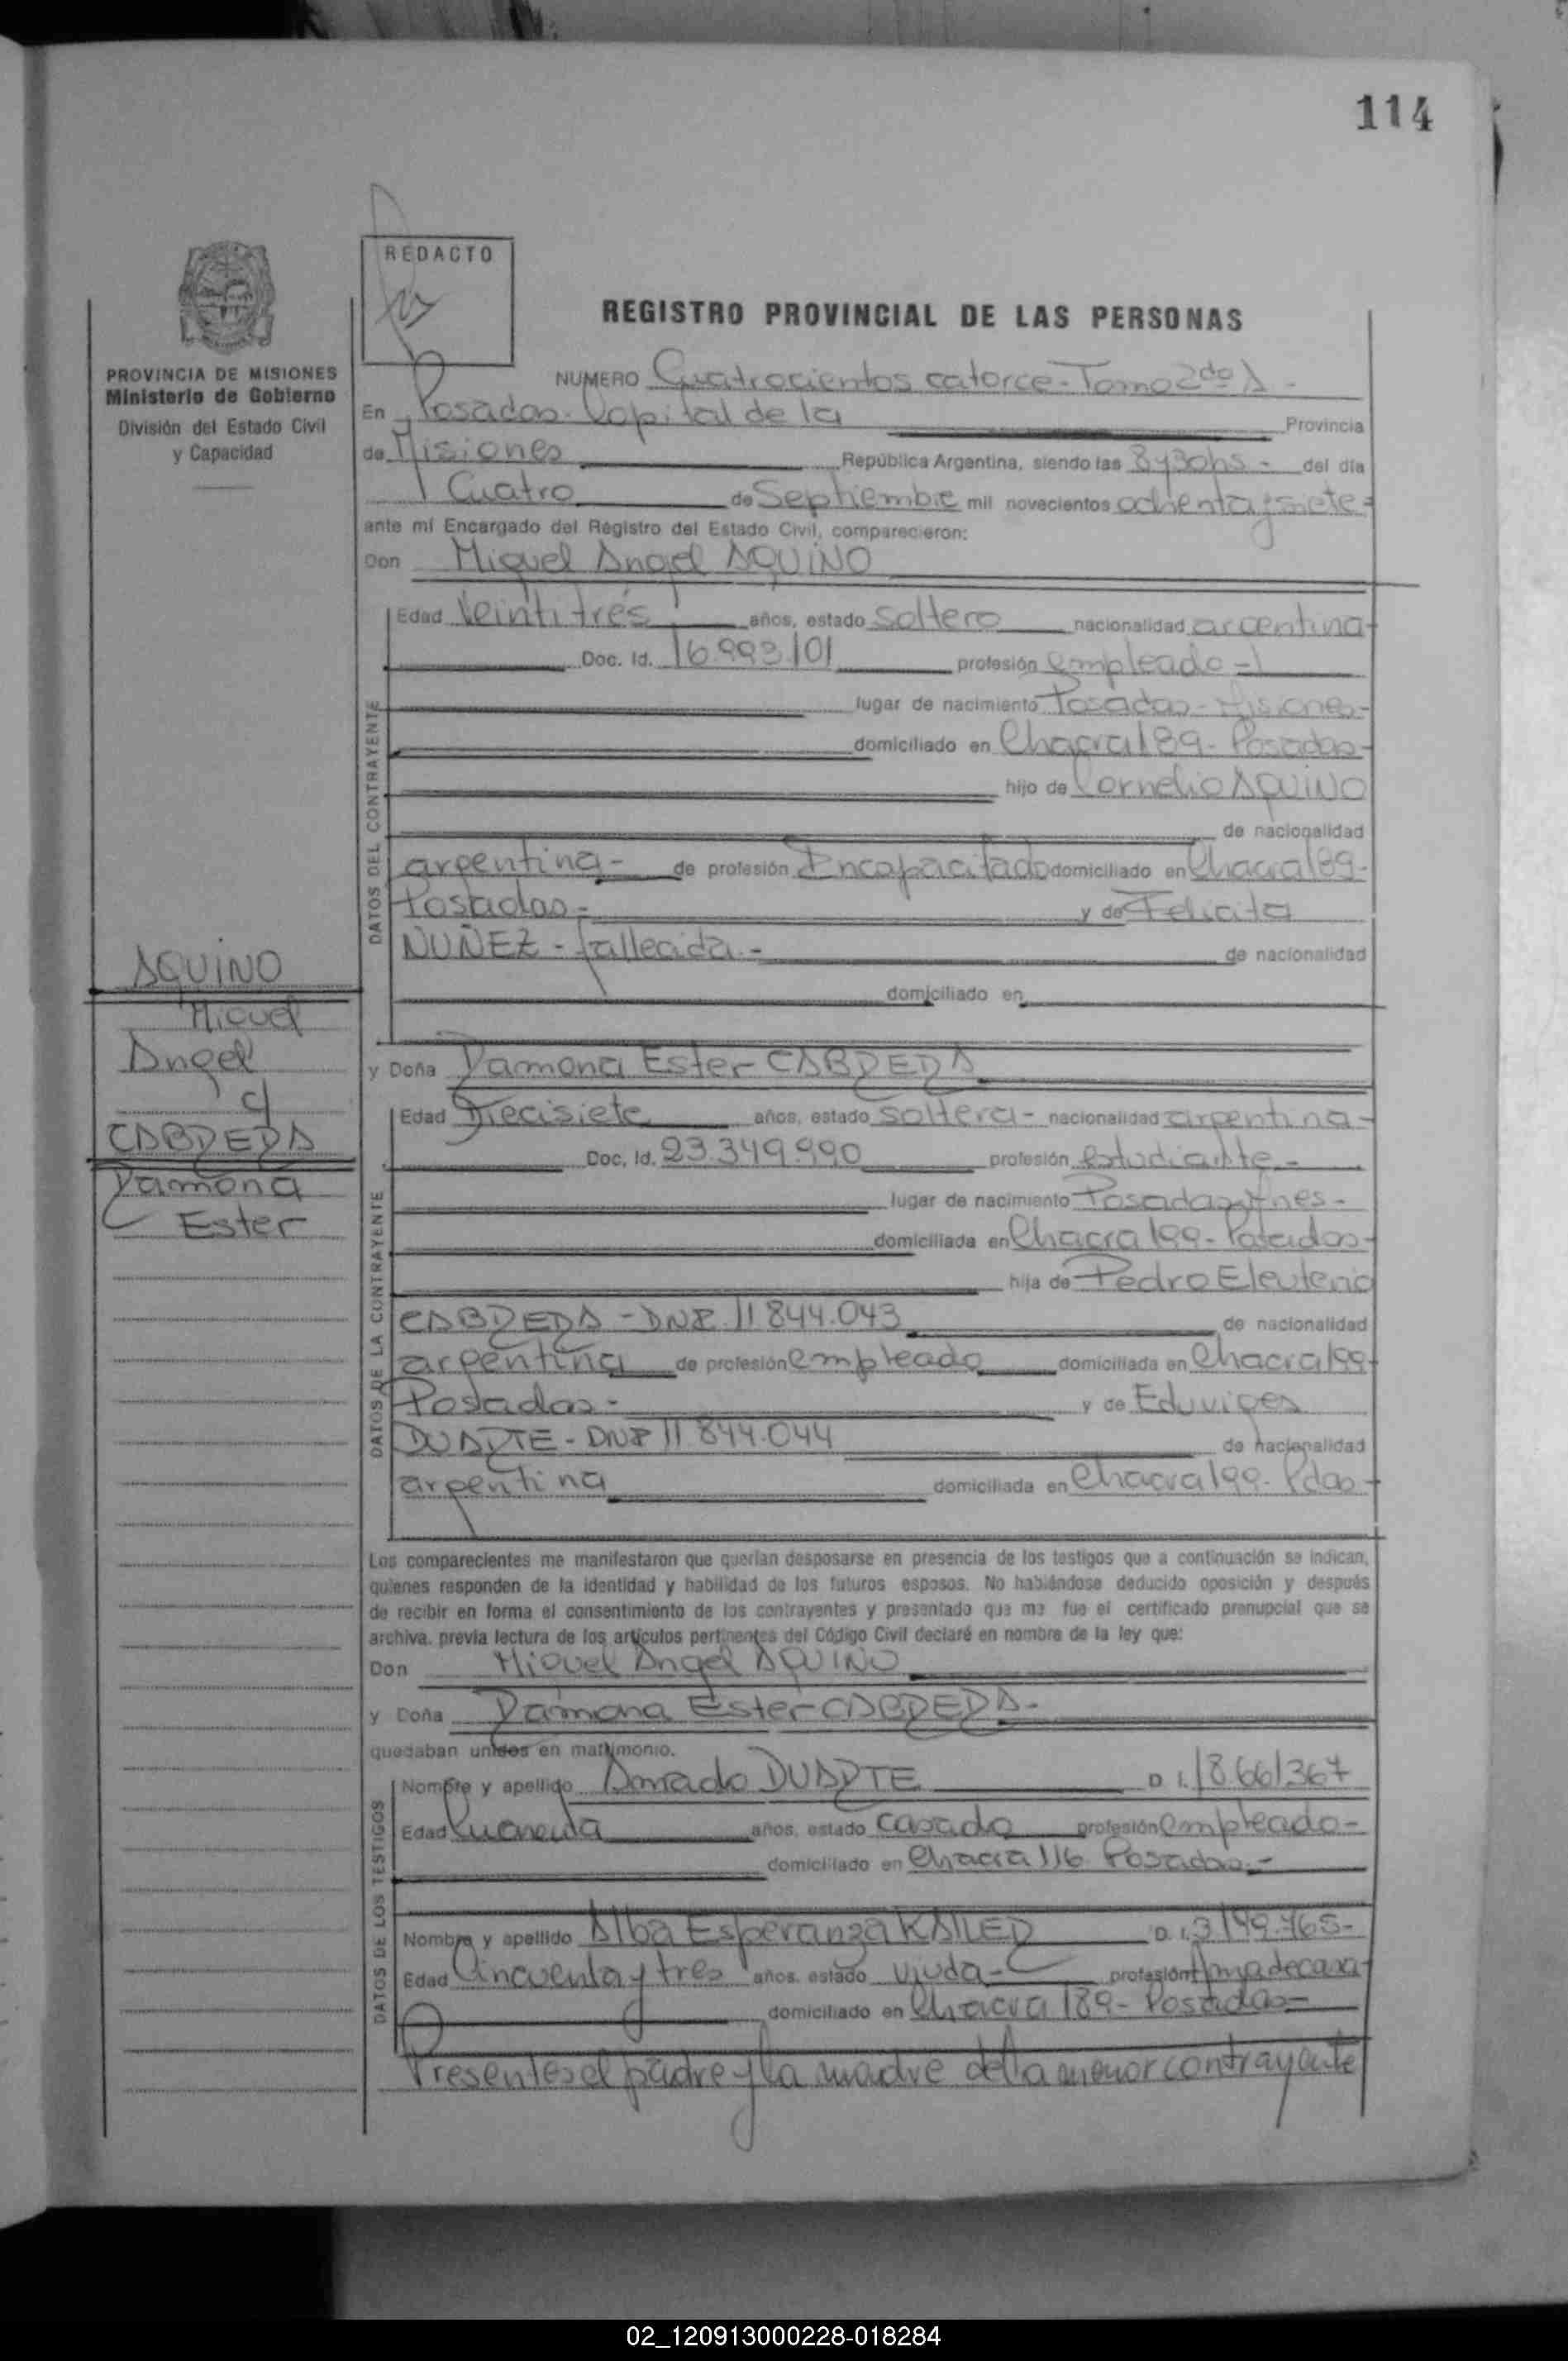 114
REDACTO
REGISTRO PROVINCIAL DE LAS PERSONAS
PROVINCIA DE MISIONES
Ministerio de Gobierno
División del Estado Civil
y Capacidad
NUMERO Cuatrocientos catorce - Tomo 2do A -
En Posadas. Capital de la Provincia
de Misiones República Argentina, siendo las 8 y 30 hs - del día
Cuatro de Septiembre mil novecientos ochenta y siete -
ante mí Encargado del Registro del Estado Civil, comparecieron:
Don Miguel Angel AQUINO
DATOS DEL CONTRAYENTE
Edad Veintitrés años, estado soltero nacionalidad argentina -
Doc. Id. 16.993.101 profesión empleado -
lugar de nacimiento Posadas - Misiones -
domiciliado en Chacra 189 - Posadas -
hijo de Cornelio AQUINO
de nacionalidad
argentina - de profesión Incapacitado domiciliado en Chacra 189 -
Posadas - y de Felicita
NUÑEZ - fallecida. - de nacionalidad
domiciliado en
AQUINO
Miguel
Angel
c/
CABRERA
Ramona
Ester
y Doña Ramona Ester CABRERA
DATOS DE LA CONTRAYENTE
Edad Diecisiete años, estado soltera - nacionalidad argentina -
Doc. Id. 23.349.990 profesión estudiante -
lugar de nacimiento Posadas Mnes -
domiciliada en Chacra 199 - Posadas -
hija de Pedro Eleuterio
CABRERA - DNI 11.844.043 de nacionalidad
argentina de profesión empleado domiciliada en Chacra 199 -
Posadas - y de Eduviges
DUARTE - DNI 11.844.044 de nacionalidad
argentina domiciliada en Chacra 199 - Pdas -
Los comparecientes me manifestaron que querían desposarse en presencia de los testigos que a continuación se indican,
quienes responden de la identidad y habilidad de los futuros esposos. No habiéndose deducido oposición y después
de recibir en forma el consentimiento de los contrayentes y presentado que me fue el certificado prenupcial que se
archiva, previa lectura de los artículos pertinentes del Código Civil declaré en nombre de la ley que:
Don Miguel Angel AQUINO
y Doña Ramona Ester CABRERA -
quedaban unidos en matrimonio.
DATOS DE LOS TESTIGOS
Nombre y apellido Amado DUARTE D. I. 8.661367
Edad Cuarenta años, estado casado profesión empleado -
domiciliado en Chacra 116 Posadas. -
Nombre y apellido Alba Esperanza D. I. 3.149.765 -
Edad Cincuenta y tres años, estado viuda - profesión Ama de casa -
domiciliado en Chacra 189 - Posadas -
Presentes el padre y la madre de la menor contrayente
02_120913000228-018284